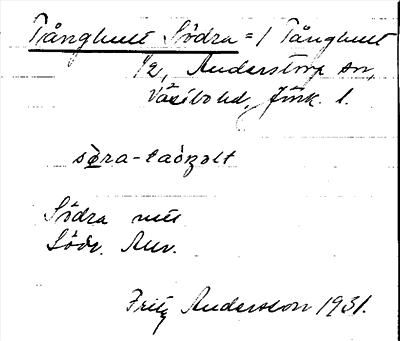 Tånghult Södra = / Tånghult
1/2, Anderstorp sn,
Västbo hd, Jönk. l.
Södra
Södr.
Fritz Andersson 1931.